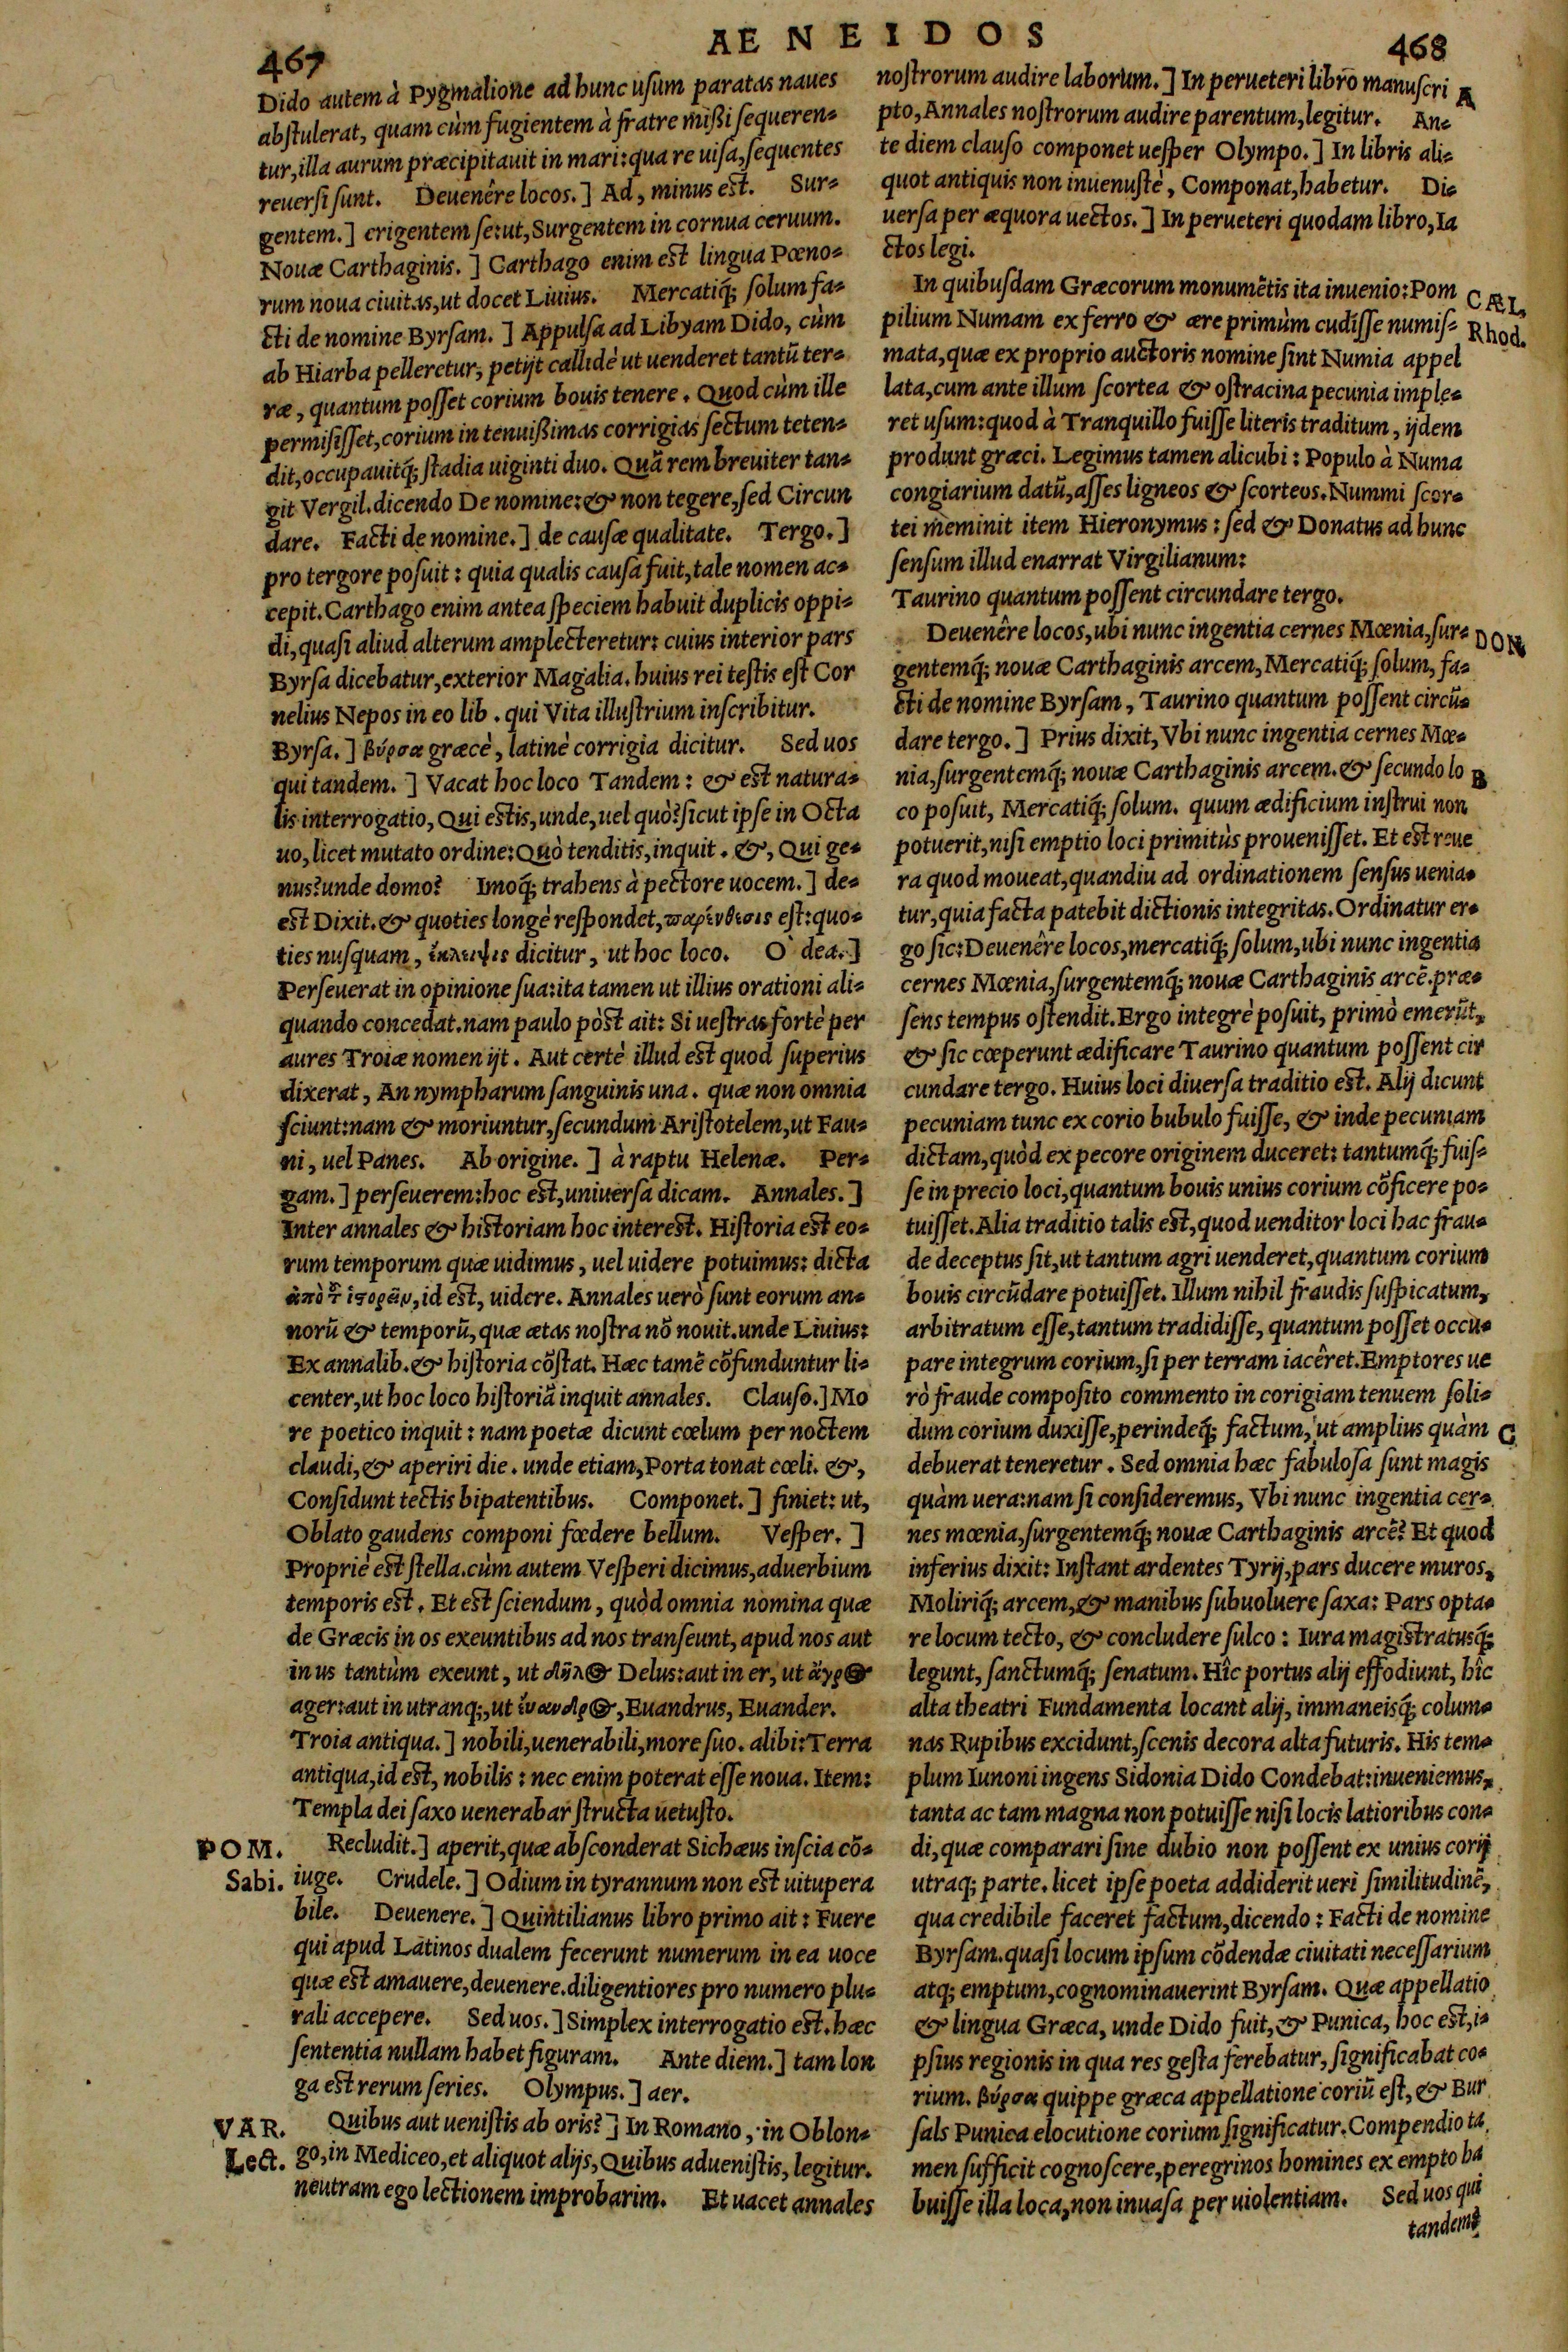 AENEIDOS
467
468
Dido autem à Pygmalione ad hunc usum paratas naues
abstulerat, quam cùm fugientem à fratre mißi sequeren-
tur, illa aurum præcipitauit in mari: qua re uisa, sequentes
reuersi sunt. Deuenêre locos.] Ad, minus est. Sur-
gentem.] erigentem se: ut, Surgentem in cornua ceruum.
Nouæ Carthaginis.] Carthago enim est lingua Pœno-
rum noua ciuitas, ut docet Liuius. Mercatiq́; solum fa-
cti de nomine Byrsam.] Appulsa ad Libyam Dido, cùm
ab Hiarba pelleretur, petijt callidè ut uenderet tantũ ter-
ræ, quantum posset corium bouis tenere. Quod cùm ille
permisisset, corium in tenuißimas corrigias sectum teten-
dit, occupauitq́; stadia uiginti duo. Quã rem breuiter tan-
git Vergil. dicendo De nomine: & non tegere, sed Circun
dare. Facti de nomine.] de causæ qualitate. Tergo.]
pro tergore posuit: quia qualis causa fuit, tale nomen ac-
cepit. Carthago enim antea speciem habuit duplicis oppi-
di, quasi aliud alterum amplecteretur: cuius interior pars
Byrsa dicebatur, exterior Magalia. huius rei testis est Cor
nelius Nepos in eo lib. qui Vita illustrium inscribitur.
Byrsa.] βύρσα græcè, latinè corrigia dicitur. Sed uos
qui tandem.] Vacat hoc loco Tandem: & est natura-
lis interrogatio, Qui estis, unde, uel quò? sicut ipse in Octa
uo, licet mutato ordine: Quò tenditis, inquit. &, Qui ge-
nus? unde domo? Imoq́; trahens à pectore uocem.] de-
est Dixit. & quoties longè respondet, παρένθεσις est: quo-
ties nusquam, ἔκλειψις dicitur, ut hoc loco. O dea.]
Perseuerat in opinione sua: ita tamen ut illius orationi ali-
quando concedat. nam paulo pòst ait: Si uestras fortè per
aures Troiæ nomen ijt. Aut certè illud est quod superius
dixerat, An nympharum sanguinis una. quæ non omnia
sciunt: nam & moriuntur, secundum Aristotelem, ut Fau-
ni, uel Panes. Ab origine.] à raptu Helenæ. Per-
gam.] perseuerem: hoc est, uniuersa dicam. Annales.]
Inter annales & historiam hoc interest. Historia est eo-
rum temporum quæ uidimus, uel uidere potuimus: dicta
ἀπὸ τ͂ ἱστορεῖν, id est, uidere. Annales uerò sunt eorum an-
norũ & temporũ, quæ ætas nostra nõ nouit. unde Liuius:
Ex annalib. & historia cõstat. Hæc tamẽ cõfunduntur li-
center, ut hoc loco historiã inquit annales. Clauso.] Mo
re poetico inquit: nam poetæ dicunt cœlum per noctem
claudi, & aperiri die. unde etiam, Porta tonat cœli. &,
Considunt tectis bipatentibus. Componet.] finiet: ut,
Oblato gaudens componi fœdere bellum. Vesper.]
Propriè est stella. cùm autem Vesperi dicimus, aduerbium
temporis est. Et est sciendum, quòd omnia nomina quæ
de Græcis in os exeuntibus ad nos transeunt, apud nos aut
in us tantùm exeunt, ut δῆλος Delus: aut in er, ut ἄγρος
ager: aut in utranq;, ut ἔυανδρος, Euandrus, Euander.
Troia antiqua.] nobili, uenerabili, more suo. alibi: Terra
antiqua, id est, nobilis: nec enim poterat esse noua. Item:
Templa dei saxo uenerabar structa uetusto.
POM. Recludit.] aperit, quæ absconderat Sichæus inscia cõ-
Sabi. iuge. Crudele.] Odium in tyrannum non est uitupera
bile. Deuenere.] Quintilianus libro primo ait: Fuere
qui apud Latinos dualem fecerunt numerum in ea uoce
quæ est amauere, deuenere. diligentiores pro numero plu-
rali accepere. Sed uos.] Simplex interrogatio est. hæc
sententia nullam habet figuram. Ante diem.] tam lon
ga est rerum series. Olympus.] aer.
VAR. Quibus aut uenistis ab oris?] In Romano, in Oblon-
Lect. go, in Mediceo, et aliquot alijs, Quibus aduenistis, legitur.
neutram ego lectionem improbarim. Et uacet annales
nostrorum audire laborum.] In perueteri libro manuscri A
pto, Annales nostrorum audire parentum, legitur. An-
te diem clauso componet uesper Olympo.] In libris ali-
quot antiquis non inuenustè, Componat, habetur. Di-
uersa per æquora uectos.] In perueteri quodam libro, Ia
ctos legi.
In quibusdam Græcorum monumẽtis ita inuenio: Pom CÆL,
pilium Numam ex ferro & ære primùm cudisse numis- Rhod.
mata, quæ ex proprio auctoris nomine sint Numia appel
lata, cum ante illum scortea & ostracina pecunia imple-
ret usum: quod à Tranquillo fuisse literis traditum, ijdem
produnt græci. Legimus tamen alicubi: Populo à Numa
congiarium datũ, asses ligneos & scorteos. Nummi scor-
tei meminit item Hieronymus: sed & Donatus ad hunc
sensum illud enarrat Virgilianum:
Taurino quantum possent circundare tergo.
Deuenêre locos, ubi nunc ingentia cernes Mœnia, sur- DON
gentemq́; nouæ Carthaginis arcem, Mercatiq́; solum, fa-
cti de nomine Byrsam, Taurino quantum possent circũ-
dare tergo.] Prius dixit, Vbi nunc ingentia cernes Mœ-
nia, surgentemq́; nouæ Carthaginis arcem. & secundo lo B
co posuit, Mercatiq́; solum. quum ædificium instrui non
potuerit, nisi emptio loci primitùs prouenisset. Et est reue
ra quod moueat, quandiu ad ordinationem sensus uenia-
tur, quia facta patebit dictionis integritas. Ordinatur er-
go sic: Deuenêre locos, mercatiq́; solum, ubi nunc ingentia
cernes Mœnia, surgentemq́; nouæ Carthaginis arcẽ. præ-
sens tempus ostendit. Ergo integrè posuit, primò emerũt,
& sic cœperunt ædificare Taurino quantum possent cir
cundare tergo. Huius loci diuersa traditio est. Alij dicunt
pecuniam tunc ex corio bubulo fuisse, & inde pecuniam
dictam, quòd ex pecore originem duceret: tantumq́; fuis-
se in precio loci, quantum bouis unius corium cõficere po-
tuisset. Alia traditio talis est, quod uenditor loci hac frau-
de deceptus sit, ut tantum agri uenderet, quantum corium
bouis circũdare potuisset. Illum nihil fraudis suspicatum,
arbitratum esse, tantum tradidisse, quantum posset occu-
pare integrum corium, si per terram iacêret. Emptores ue
rò fraude composito commento in corigiam tenuem soli-
dum corium duxisse, perindeq́; factum, ut amplius quàm C
debuerat teneretur. Sed omnia hæc fabulosa sunt magis
quàm uera: nam si consideremus, Vbi nunc ingentia cer-
nes mœnia, surgentemq́; nouæ Carthaginis arcẽ? Et quod
inferius dixit: Instant ardentes Tyrij, pars ducere muros,
Moliriq́; arcem, & manibus subuoluere saxa: Pars opta-
re locum tecto, & concludere sulco: Iura magistratusq́;
legunt, sanctumq́; senatum. Hîc portus alij effodiunt, hîc
alta theatri Fundamenta locant alij, immaneisq́; colum-
nas Rupibus excidunt, scenis decora alta futuris. His tem-
plum Iunoni ingens Sidonia Dido Condebat: inueniemus,
tanta ac tam magna non potuisse nisi locis latioribus con-
di, quæ comparari sine dubio non possent ex unius corij
utraq; parte. licet ipse poeta addiderit ueri similitudinẽ,
qua credibile faceret factum, dicendo: Facti de nomine
Byrsam. quasi locum ipsum cõdendæ ciuitati necessarium
atq; emptum, cognominauerint Byrsam. Quæ appellatio
& lingua Græca, unde Dido fuit, & Punica, hoc est, i-
psius regionis in qua res gesta ferebatur, significabat co-
rium. βύρσα quippe græca appellatione coriũ est, & Bur
sals Punica elocutione corium significatur. Compendio ta
men sufficit cognoscere, peregrinos homines ex empto ha
buisse illa loca, non inuasa per uiolentiam. Sed uos qui
tandem?